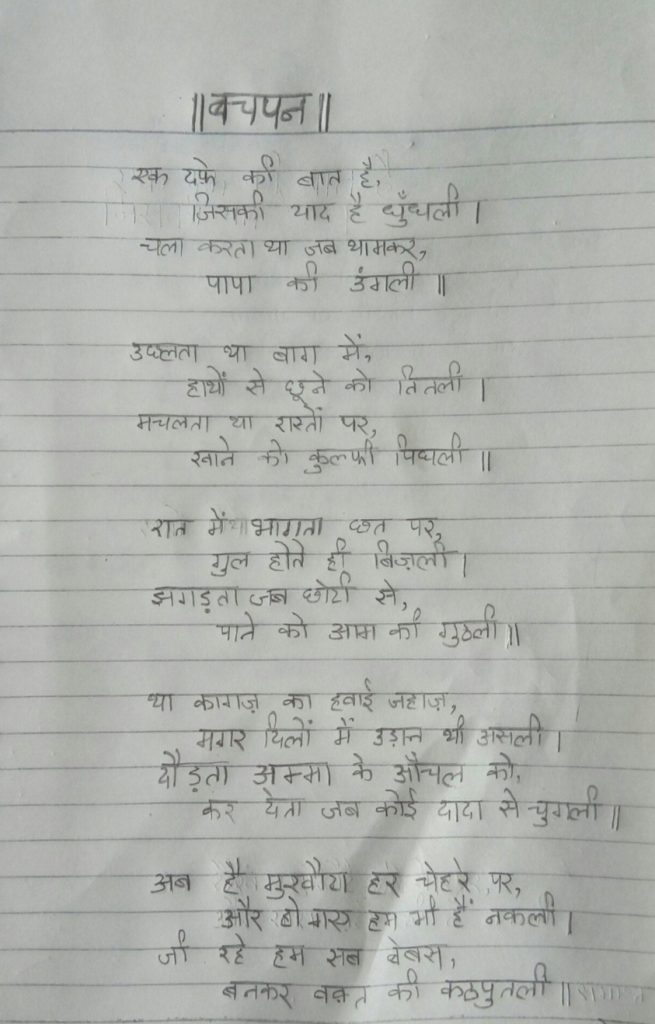 ॥बचपन॥
एक दफ़े की बात है,
जिसकी याद है धुँधली।
चला करता था जब थामकर,
पापा की उंगली॥
उछलता था बाग में,
हाथों से छूने को तितली।
मचलता था रास्तों पर,
खाने को कुल्फी पिघली॥
रात में भागता छत पर,
गुल होते ही बिज़ली।
झगड़ता जब छोटी से,
पाने को आम की गुठली॥
था कागज़ का हवाई जहाज़,
मगर दिलों में उड़ान थी असली।
दौड़ता अम्मा के आँचल को,
कर देता जब कोई दादा से चुगली॥
अब है मुखौटा हर चेहरे पर,
और हो गए हम भी हैं नकली।
जी रहे हम सब बेबस,
बनकर वक़्त की कठपुतली॥